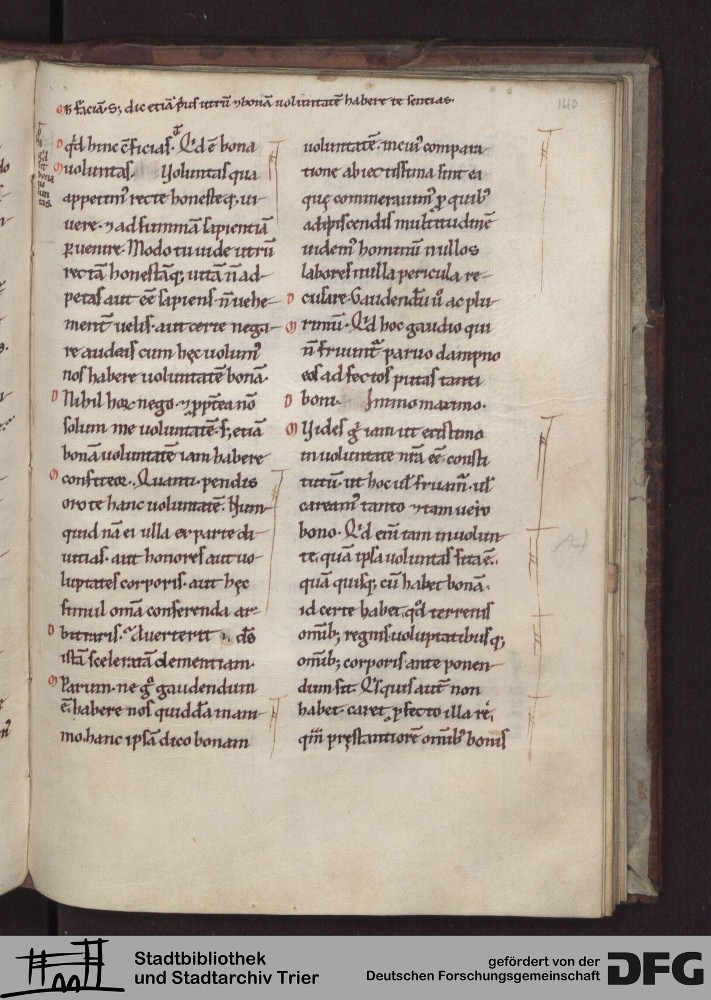 faciā. S; dic etiā prius utrū & bonā uoluntatē habere te sentias.
140
qd hinc efficias. Qid ē bona
uoluntas. Voluntas qua
appetimus recte honesteq; ui-
uere. & ad summam sapientiā
puenire. Modo tu uide utrū
rectā honestāq; uitā n̄ ad-
petas aut eē sapiens n̄ uehe-
ment uelis. aut certe nega-
re audeas cum hęc uolum
nos habere uoluntatē bonā.
Nihil hoc nego. & ppterea nō
solum me uoluntatē. s; etiā
bonā uoluntatē iam habere
confiteor. Quanti pendis
oro te hanc uoluntatē. Num-
quid nā ei ulla ex parte di-
uitias. aut honores aut uo-
luptates corporis. aut hęc
simul omīa conferenda ar-
bitraris. Auertat ds
istā sceleratā clementiam.
Parum. ne g gaudendum
ē habere nos quiddā in ani-
mo. hanc ipsā dico bonam
uoluntatē. in cuius compara-
tione abiectissima sint ea
quę commemorauim. p quib
adipiscendis multitudinē
uidem hominū nullos
labores nulla pericula re-
cusare. Gaudendū u ac plu-
rimū. Qid hoc gaudio qui
n̄ fruunt paruo dampno
eos adfectos putas tanti
boni. Immo maximo.
Vides g iam ut existimo
in uoluntate nrā eē consti-
tutū. ut hoc ul fruam. ul
caream tanto & tam uero
bono. Qid enī tam in uolun-
te. quā ipsa uoluntas sita ē.
quā quisq; cū habet bonā.
id certe habet. qd terrenis
omīb; regnis uoluptatibusq;
omīb; corporis ante ponen-
dum sit. Qisquis autē non
habet. caret pfecto illa re.
quā pręstantiorē omīb bonis
Stadtbibliothek
und Stadtarchiv Trier
gefördert von der
Deutschen Forschungsgemeinschaft
DFG